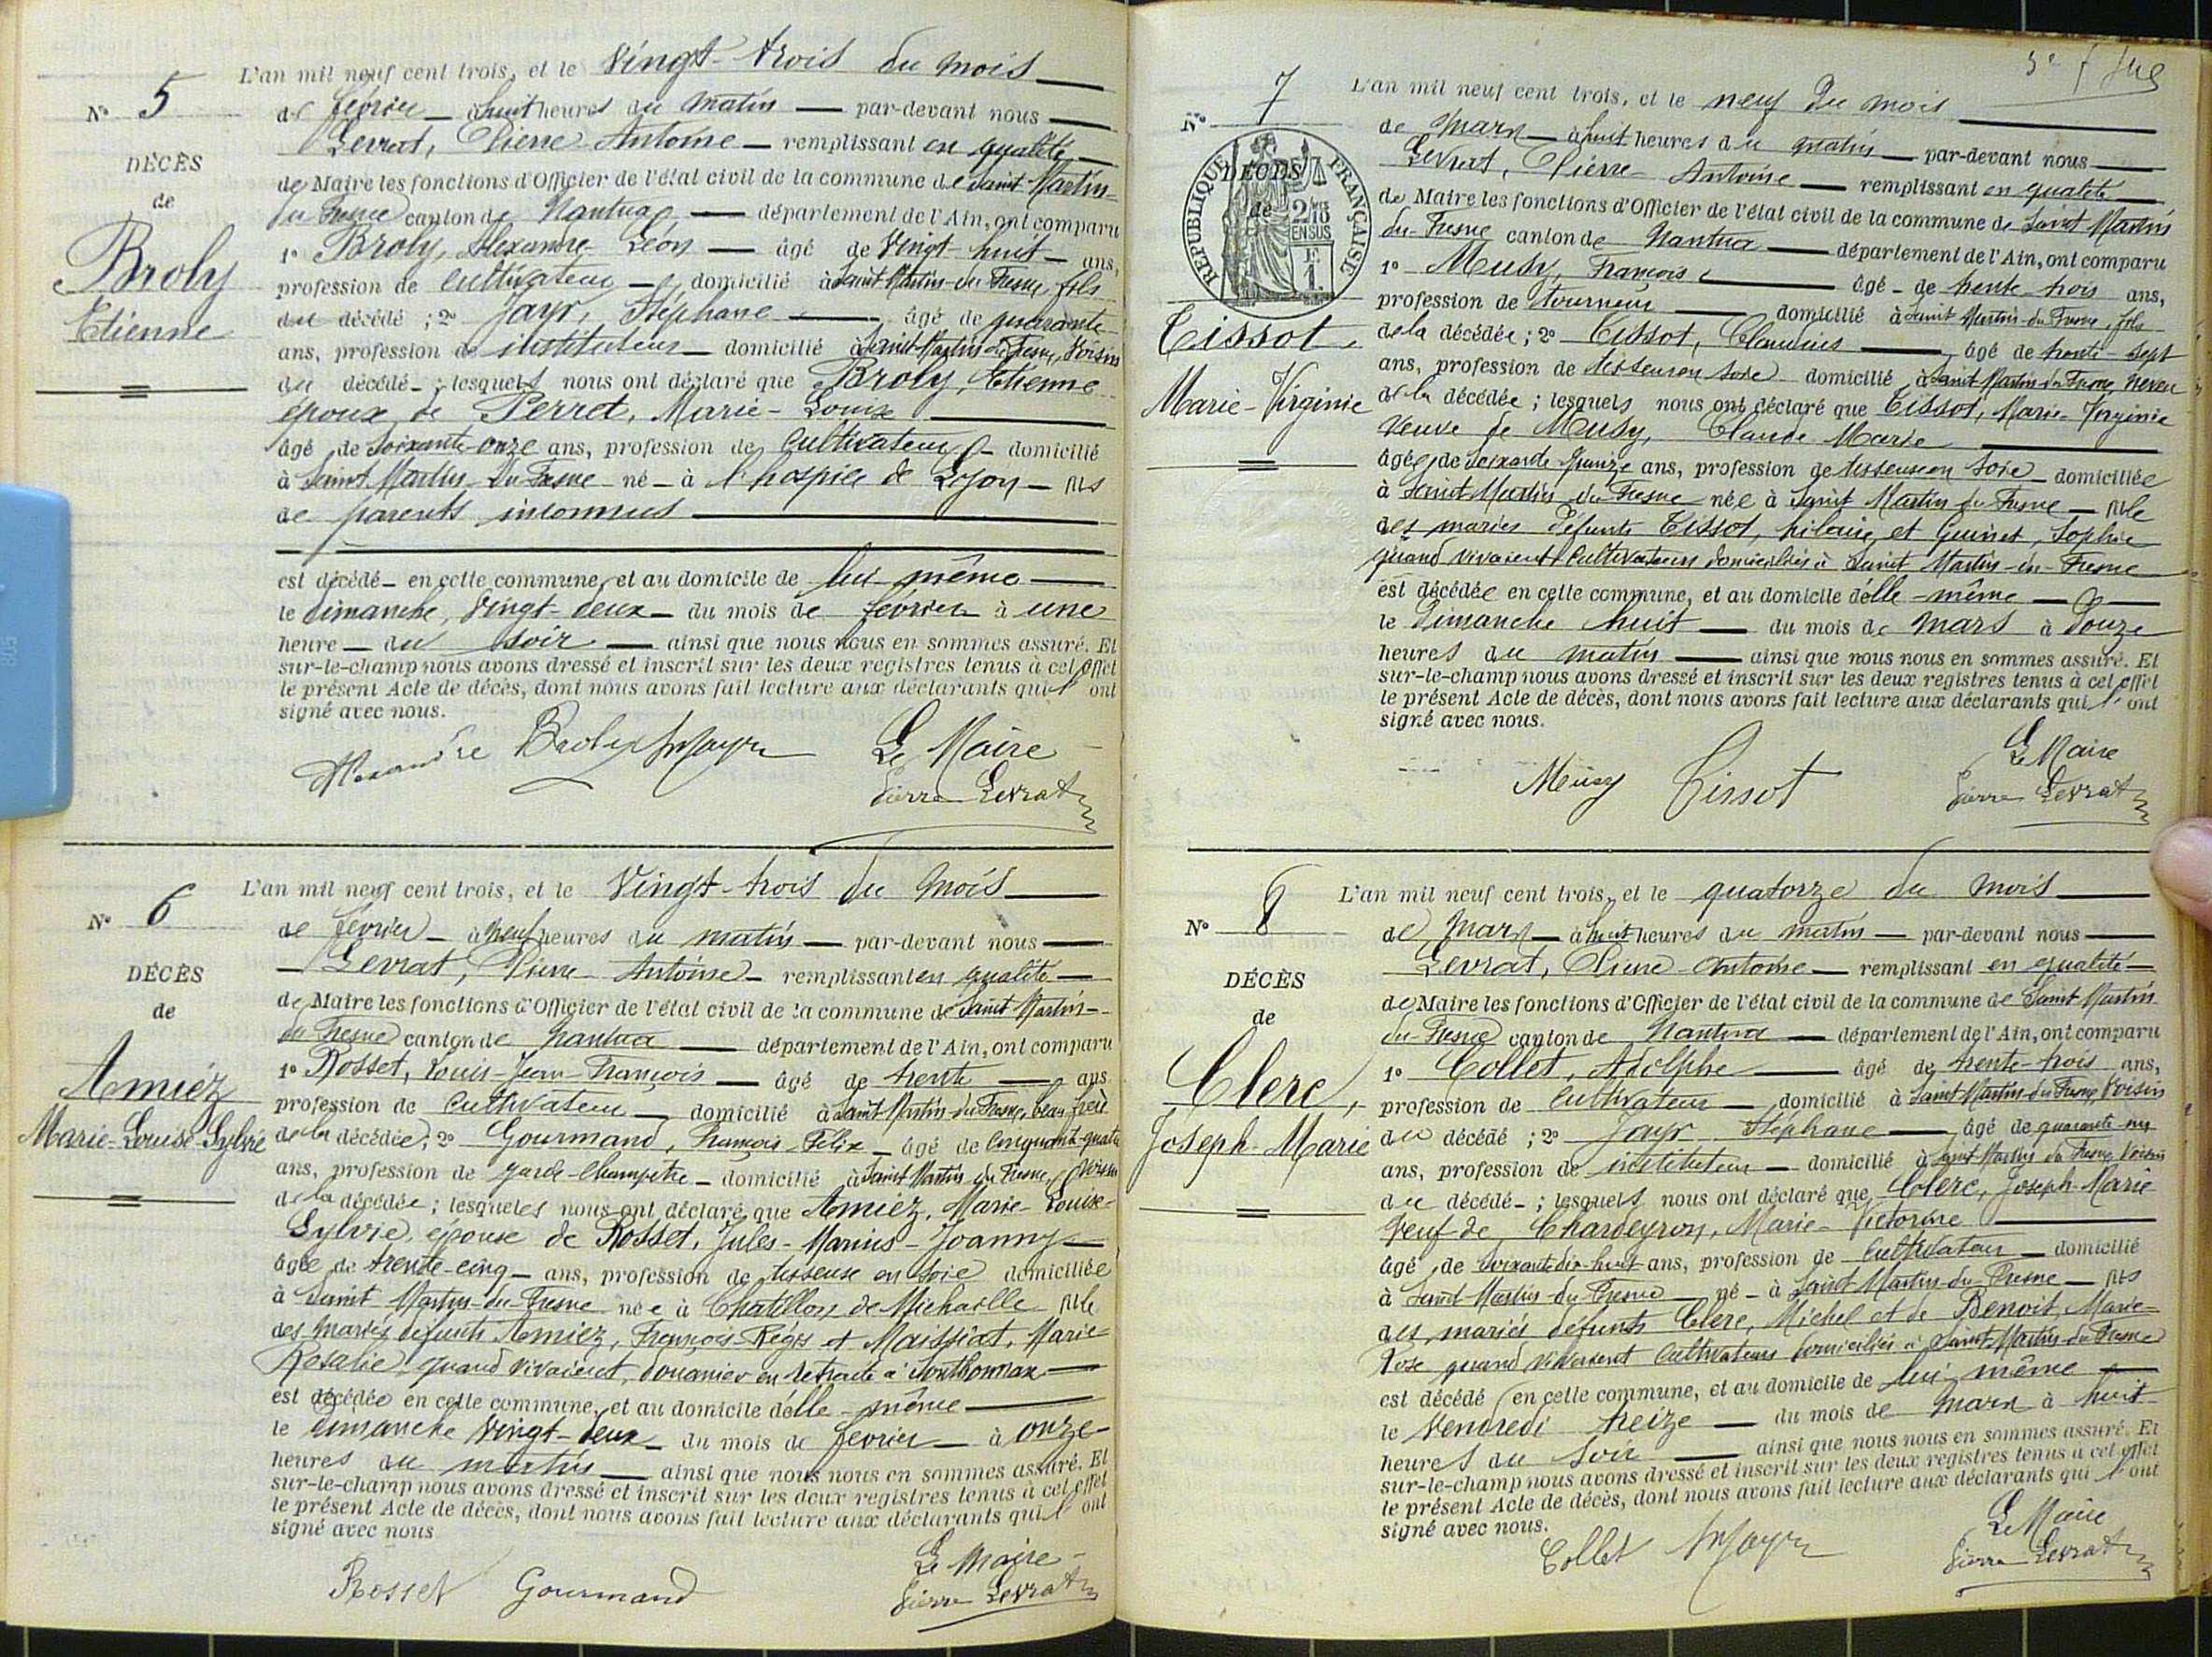 L'an mil neuf cent trois, et le vingt-trois du mois
N° 5
de février à huit heures du matin par-devant nous
Levrat, Pierre Antoine remplissant en qualité
DÉCÈS
de Maire les fonctions d'Officier de l'état civil de la commune de Saint Martin-
de
du Fresne canton de Nantua département de l'Ain, ont comparu
1° Broly, Alexandre Léon âgé de vingt-huit ans,
Broly
profession de cultivateur domicilié à Saint-Martin-du-Fresne, fils
Etienne
du décédé ; 2° Jayr, Stéphane âgé de quarante
ans, profession de instituteur domicilié à Saint-Martin-du-Fresne, voisin
du décédé ; lesquels nous ont déclaré que Broly, Etienne
époux de Perret, Marie-Louise
âgé de soixante-onze ans, profession de cultivateur domicilié
à Saint Martin-du-Fresne né à l'hospice de Lyon fils
de parents inconnus
est décédé en cette commune, et au domicile de lui-même
le dimanche, vingt-deux du mois de février à une
heure du soir ainsi que nous nous en sommes assuré. Et
sur-le-champ nous avons dressé et inscrit sur les deux registres tenus à cet effet
le présent Acte de décès, dont nous avons fait lecture aux déclarants qui l'ont
signé avec nous.
Alexandre Broly Jayr Le Maire
Pierre Levrat
L'an mil neuf cent trois, et le vingt-trois du mois
N° 6
de février à neuf heures du matin par-devant nous
Levrat, Pierre Antoine remplissant en qualité
DÉCÈS
de Maire les fonctions d'Officier de l'état civil de la commune de Saint Martin-
de
du Fresne canton de Nantua département de l'Ain, ont comparu
1° Rosset, Louis-Jean-François âgé de trente ans
Amiéz
profession de cultivateur domicilié à Saint-Martin-du-Fresne, beau frère
Marie-Louise-Sylvie
de la décédée ; 2° Gourmand, François Félix âgé de cinquante-quatre
ans, profession de garde-champêtre domicilié à Saint Martin du Fresne, voisin
de la décédée ; lesquels nous ont déclaré que Amiéz, Marie-Louise-
Sylvie, épouse de Rosset, Jules-Marius-Joanny
âgée de trente-cinq ans, profession de tisseuse en soie domiciliée
à Saint Martin-du-Fresne née à Chatillon de Michaille fille
des mariés défunts Amiez, François-Régis et Maissiat, Marie-
Rosalie, quand vivaient, douanier en retraite à Montholmax
est décédée en cette commune, et au domicile d'elle-même
le dimanche vingt-deux du mois de février à onze
heures du matin ainsi que nous nous en sommes assuré. Et
sur-le-champ nous avons dressé et inscrit sur les deux registres tenus à cet effet
le présent Acte de décès, dont nous avons fait lecture aux déclarants qui l'ont
signé avec nous
Le Maire
Rosset Gourmand Pierre Levrat
L'an mil neuf cent trois, et le neuf du mois
N° 7
de mars à huit heures du matin par-devant nous
Levrat, Pierre-Antoine remplissant en qualité
DÉCÈS
de
RÉPUBLIQUE FRANÇAISE
2/10 EN SUS
de Maire les fonctions d'Officier de l'état civil de la commune de Saint Martin
du-Fresne canton de Nantua département de l'Ain, ont comparu
1° Musy, François âgé de trente-trois ans,
profession de tourneur domicilié à Saint Martin-du-Fresne, fils
Tissot,
de la décédée ; 2° Tissot, Claudius âgé de trente-sept
ans, profession de tisseur en soie domicilié à Saint-Martin-du-Fresne, neveu
Marie-Virginie
de la décédée ; lesquels nous ont déclaré que Tissot, Marie-Virginie
veuve de Musy, Claude Marie
âgée de soixante-quinze ans, profession de tisseuse en soie domiciliée
à Saint-Martin du-Fresne née à Saint Martin du Fresne fille
des mariés défunts Tissot, hilaire, et Guinet, Sophie
quand vivaient cultivateurs domiciliés à Saint Martin-du-Fresne
est décédée en cette commune, et au domicile d'elle-même
le Dimanche huit du mois de mars à douze
heures du matin ainsi que nous nous en sommes assuré. Et
sur-le-champ nous avons dressé et inscrit sur les deux registres tenus à cet effet
le présent Acte de décès, dont nous avons fait lecture aux déclarants qui l'ont
signé avec nous.
Le Maire
Musy Tissot Pierre Levrat
L'an mil neuf cent trois, et le quatorze du mois
N° 8
de mars à huit heures du matin par-devant nous
Levrat, Pierre Antoine remplissant en qualité
DÉCÈS
de Maire les fonctions d'Officier de l'état civil de la commune de Saint Martin
de
du-Fresne canton de Nantua département de l'Ain, ont comparu
1° Collet, Adolphe âgé de trente-trois ans,
Clerc,
profession de cultivateur domicilié à Saint Martin-du-Fresne, voisin
Joseph-Marie
du décédé ; 2° Jayr Stéphane âgé de quarante
ans, profession de instituteur domicilié à Saint-Martin du Fresne, voisin
du décédé ; lesquels nous ont déclaré que Clerc, Joseph-Marie
veuf de Chardeyron, Marie-Victorine
âgé de soixante dix-huit ans, profession de cultivateur domicilié
à Saint-Martin-du-Fresne né à Saint Martin-du-Fresne fils
des mariés défunts Clerc, Michel et de Benoit, Marie-
Rose quand vivaient cultivateurs domiciliés à Saint-Martin-du-Fresne
est décédé en cette commune, et au domicile de lui-même
le vendredi treize du mois de mars à huit
heures du soir ainsi que nous nous en sommes assuré. Et
sur-le-champ nous avons dressé et inscrit sur les deux registres tenus à cet effet
le présent Acte de décès, dont nous avons fait lecture aux déclarants qui l'ont
signé avec nous.
Le Maire
Collet Jayr Pierre Levrat